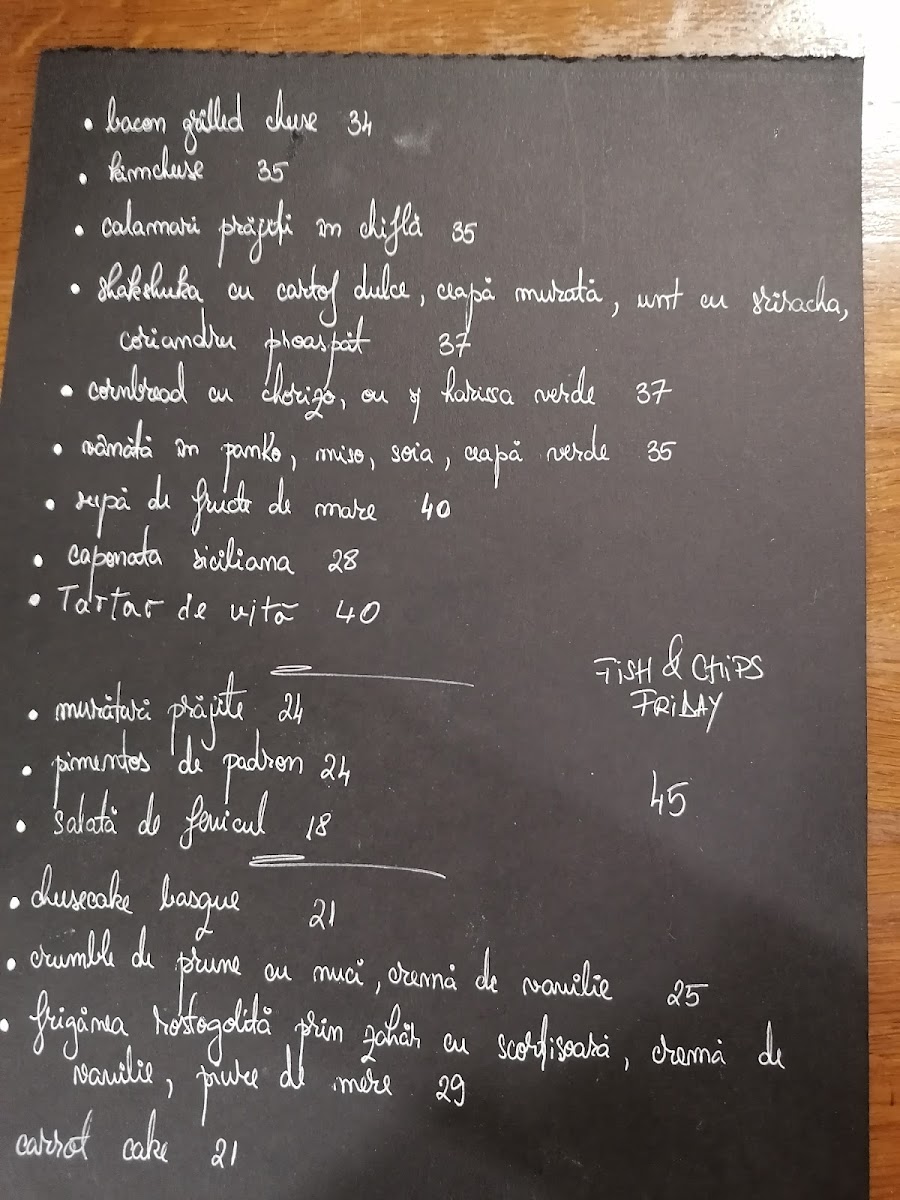 • bacon grilled cheese 34
• kimcheese 35
• calamari prăjiți în chiflă 35
• shakshuka cu cartof dulce, ceapă murată, unt cu sriracha,
coriandru proaspăt 37
• cornbread cu chorizo, ou și harissa verde 37
• vânătă în panko, miso, soia, ceapă verde 35
• supă de fructe de mare 40
• caponata siciliana 28
• Tartar de vită 40
FISH & CHIPS
FRIDAY
45
• murături prăjite 24
• pimentos de padron 24
• salată de fenicul 18
• cheesecake basque 21
• crumble de prune cu nuci, cremă de vanilie 25
• frigănea rostogolită prin zahăr cu scorțișoară, cremă de
vanilie, piure de mere 29
carrot cake 21